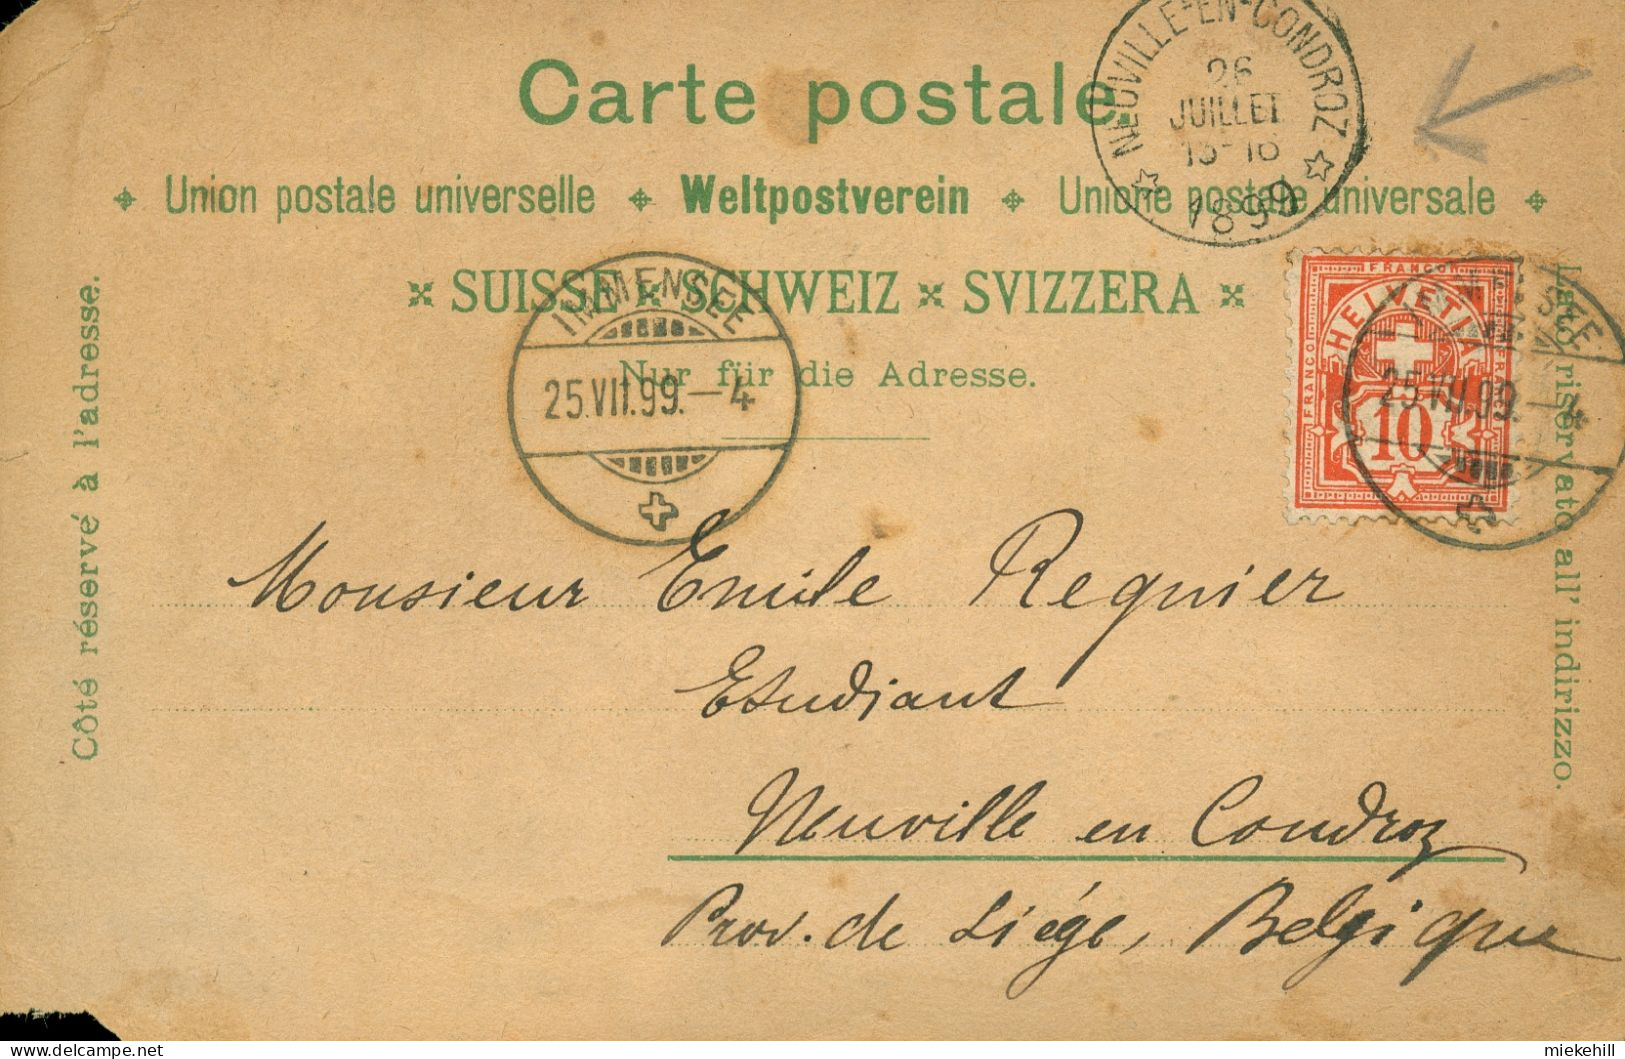 Carte postale
Union postale universelle Weltpostverein Unione postale universale
SUISSE SCHWEIZ SVIZZERA
Nur für die Adresse.
Côté réservé à l'adresse.
Lato riservato all' indirizzo.
NEUVILLE-EN-CONDROZ
26
JUILLET
1899
IMMENSEE
25.VII.99.–4
FRANCO
FRANCO
HELVETIA
10
25.VII.99.–4
Monsieur Emile Requier
Etudiant
Neuville en Condroz
Prov. de Liége, Belgique
delcampe.net
miekehill